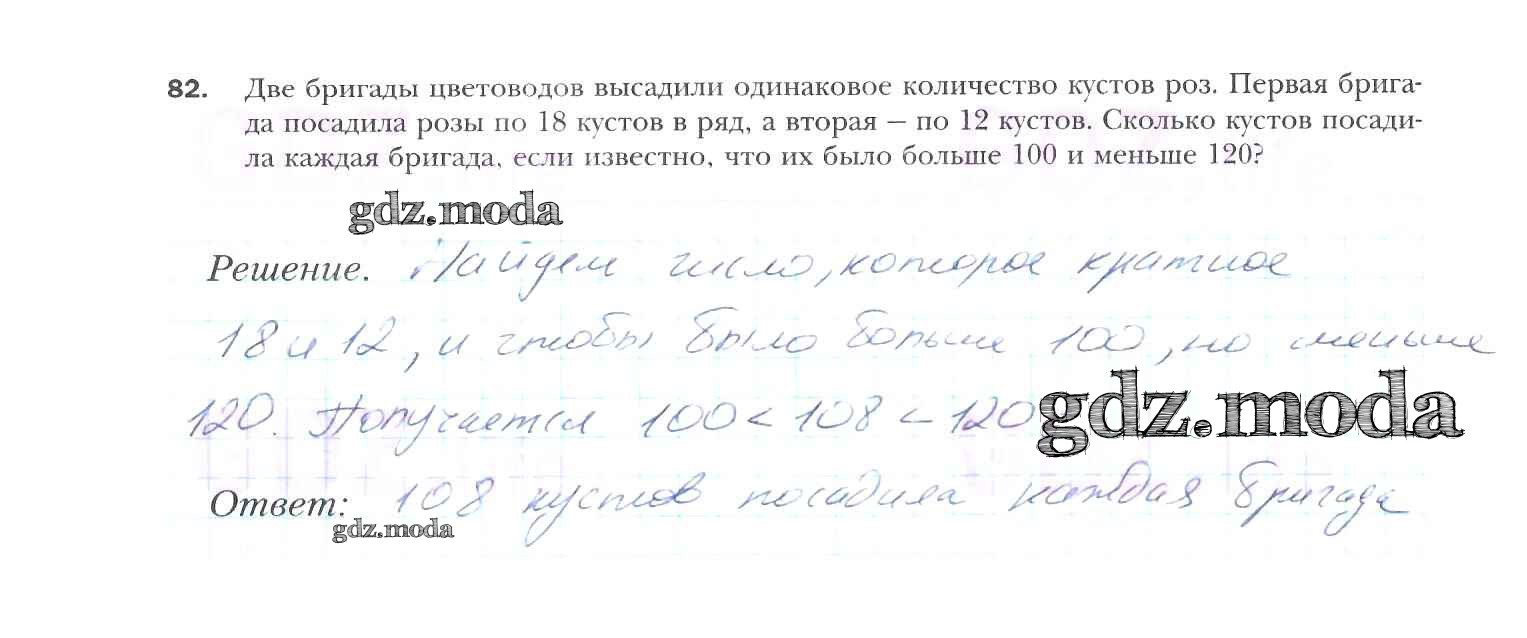 82. Две бригады цветоводов высадили одинаковое количество кустов роз. Первая брига-
да посадила розы по 18 кустов в ряд, а вторая – по 12 кустов. Сколько кустов посади-
ла каждая бригада, если известно, что их было больше 100 и меньше 120?
gdz.moda
Решение. Найдем число, которое кратное
18 и 12, и чтобы было больше 100, но меньше
120. Получается 100 < 108 < 120
gdz.moda
Ответ: 108 кустов посадила каждая бригада
gdz.moda